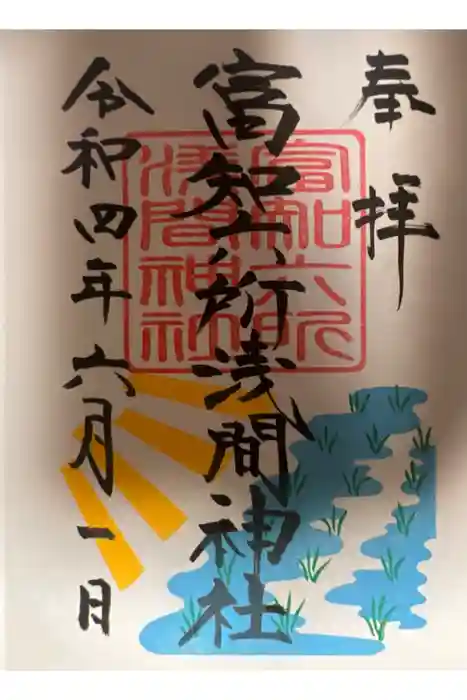 奉拝
富知六所浅間神社
富知六所
浅間神社
令和四年六月一日